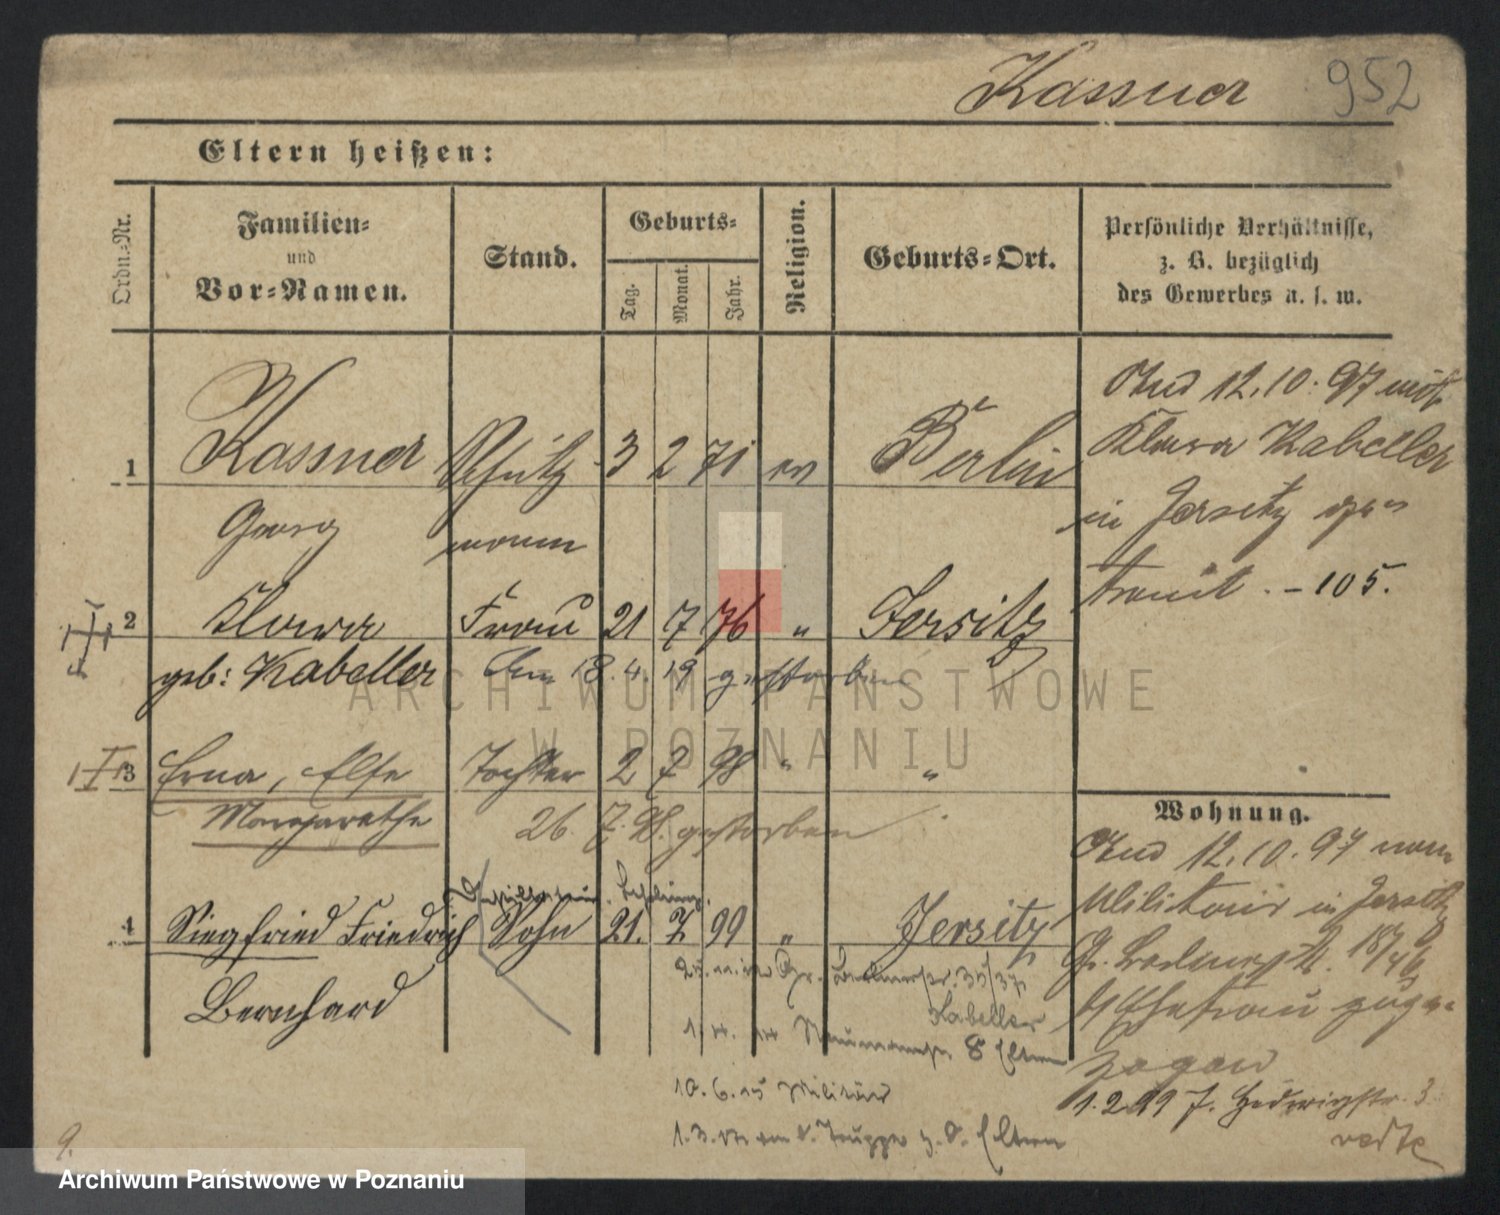 Kassner 952
Eltern heißen:
Ordn.-Nr.
Familien-
und
Vor-Namen.
Stand.
Geburts-
Tag.
Monat.
Jahr.
Religion.
Geburts-Ort.
Persönliche Verhältnisse,
z. B. bezüglich
des Gewerbes u. s. w.
1 Kassner Schutz- 3 2 71 ev Berlin
Georg mann
2 Klara Frau 21 7 76 " Jersitz
geb: Kabeller am 18.4.19 gestorben
3 Erna, Else Tochter 2 7 98 " "
Margarethe 26. 7. 98. gestorben
4 Siegfried Friedrich Sohn 21. 7 99 " Jersitz
Bernhard
12.10.97 mit
Klara Kabeller
in Jersitz ge-
traut. - 105.
Wohnung.
12.10.97 vom
Militair in Jersitz
Ehefrau zuge-
zogen
1.2.99 J. Hedwigstr. 3
Kabeller
8 Eltern
10.6.15 Militär
1.3. Truppe z. d. Eltern
9.
ARCHIWUM PAŃSTWOWE
W POZNANIU
Archiwum Państwowe w Poznaniu